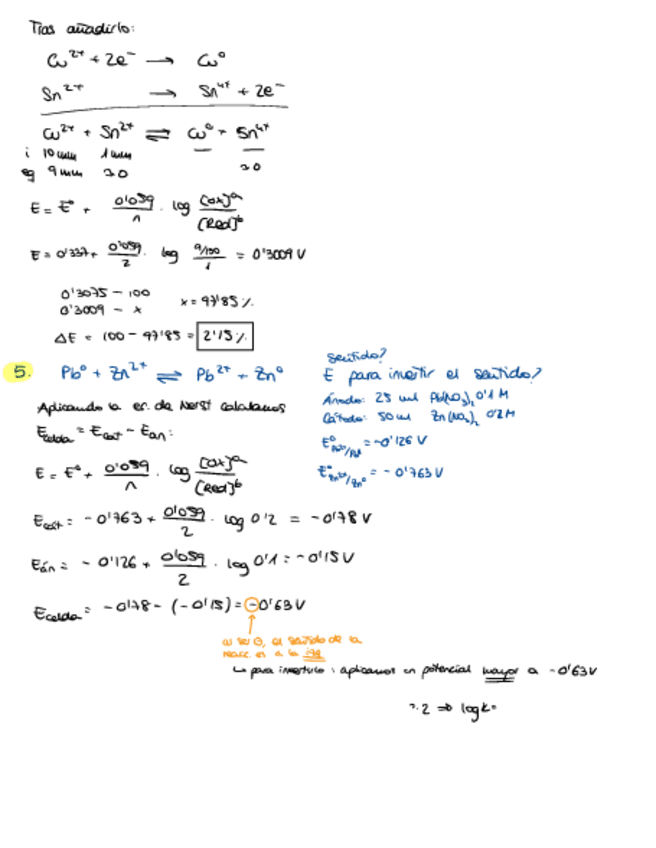 Tras añadirlo:
Cu²⁺ + 2e⁻ → Cu⁰
Sn²⁺ → Sn⁴⁺ + 2e⁻
Cu²⁺ + Sn²⁺ ⇌ Cu⁰ + Sn⁴⁺
i 10 mm 1 mm — —
eq 9 mm 20 20
E = E⁰ + 0'059/n · log [Ox]ᵃ/[Red]ᵇ
E = 0'337 + 0'059/2 · log (9/150)/1 = 0'3009 V
0'3075 – 100
0'3009 – x x = 97'85 %
ΔE = 100 – 97'85 = 2'15 %
5. Pb⁰ + Zn²⁺ ⇌ Pb²⁺ + Zn⁰
Sentido?
E para invertir el sentido?
Ánodo: 25 ml Pb(NO₃)₂ 0'1 M
Cátodo: 50 ml Zn(NO₃)₂ 0'2 M
E⁰ Pb²⁺/Pb⁰ = -0'126 V
E⁰ Zn²⁺/Zn⁰ = -0'763 V
Aplicando la ec. de Nerst calculamos
Ecelda = Ecat – Ean:
E = E⁰ + 0'059/n · log [Ox]ᵃ/[Red]ᵇ
Ecát = -0'763 + 0'059/2 · log 0'2 = -0'78 V
Eán = -0'126 + 0'059/2 · log 0'1 = -0'15 V
Ecelda = -0'78 – (-0'15) = -0'63 V
al ser ⊖, el sentido de la
reacc. es a la izq
↳ para invertirlo: aplicamos un potencial mayor a -0'63 V
2 ⇒ log k =